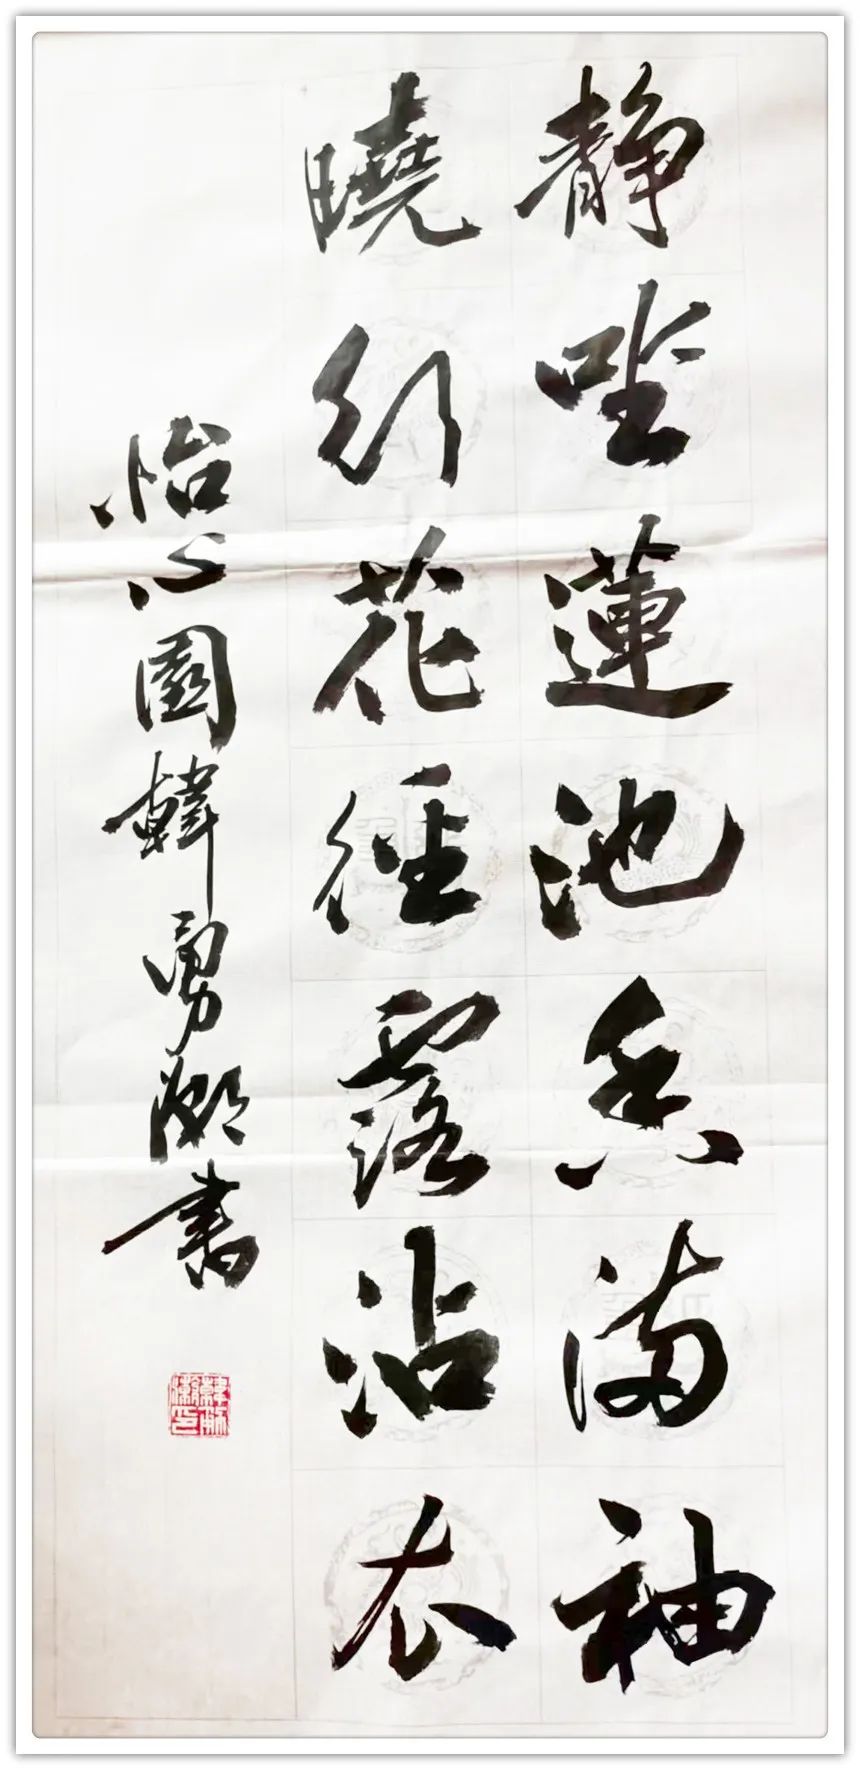 静坐蓮池香满袖
曉行花徑露沾衣
怡心園韓勇瀚書